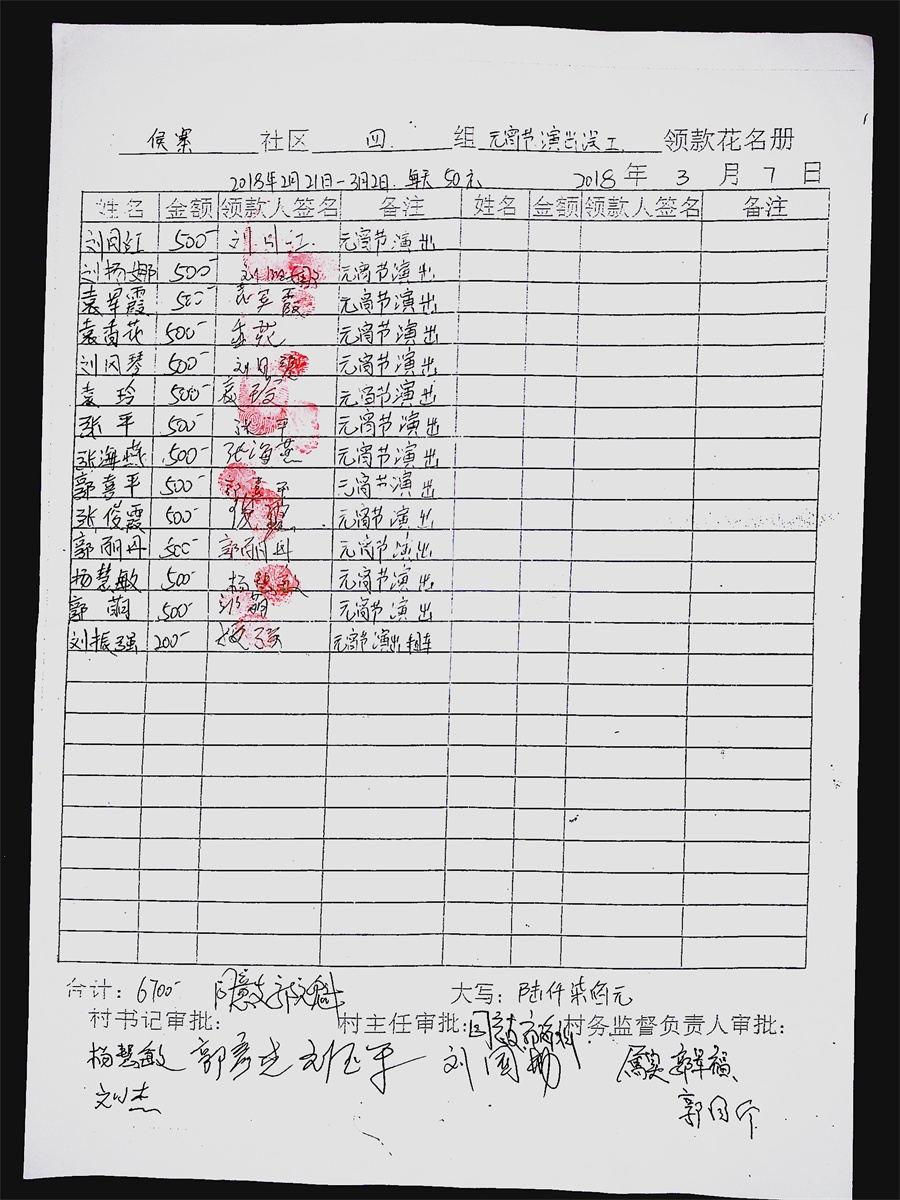 侯寨 社区 四 组 元宵节演出误工 领款花名册
2018年2月21日-3月2日. 每天50元 2018年3月7日
姓名 金额 领款人签名 备注 姓名 金额 领款人签名 备注
500- 元宵节演出
刘扬娜 500- 元宵节演出
袁军霞 500- 袁军霞 元宵节演出
袁香花 500- 元宵节演出
刘风琴 500- 元宵节演出
袁玲 500- 袁玲 元宵节演出
张平 500- 张平 元宵节演出
张海燕 500- 张海燕 元宵节演出
郭喜平 500- 郭喜平 元宵节演出
张俊霞 500- 元宵节演出
郭丽丹 500- 郭丽丹 元宵节演出
杨慧敏 500- 杨慧敏 元宵节演出
郭萌 500- 元宵节演出
刘振强 200- 元宵节演出
合计: 6700- 同意支 大写: 陆仟柒佰元
村书记审批: 村主任审批: 同意支 村务监督负责人审批:
杨慧敏 郭彦光 刘国场 属实 郭军福
刘杰